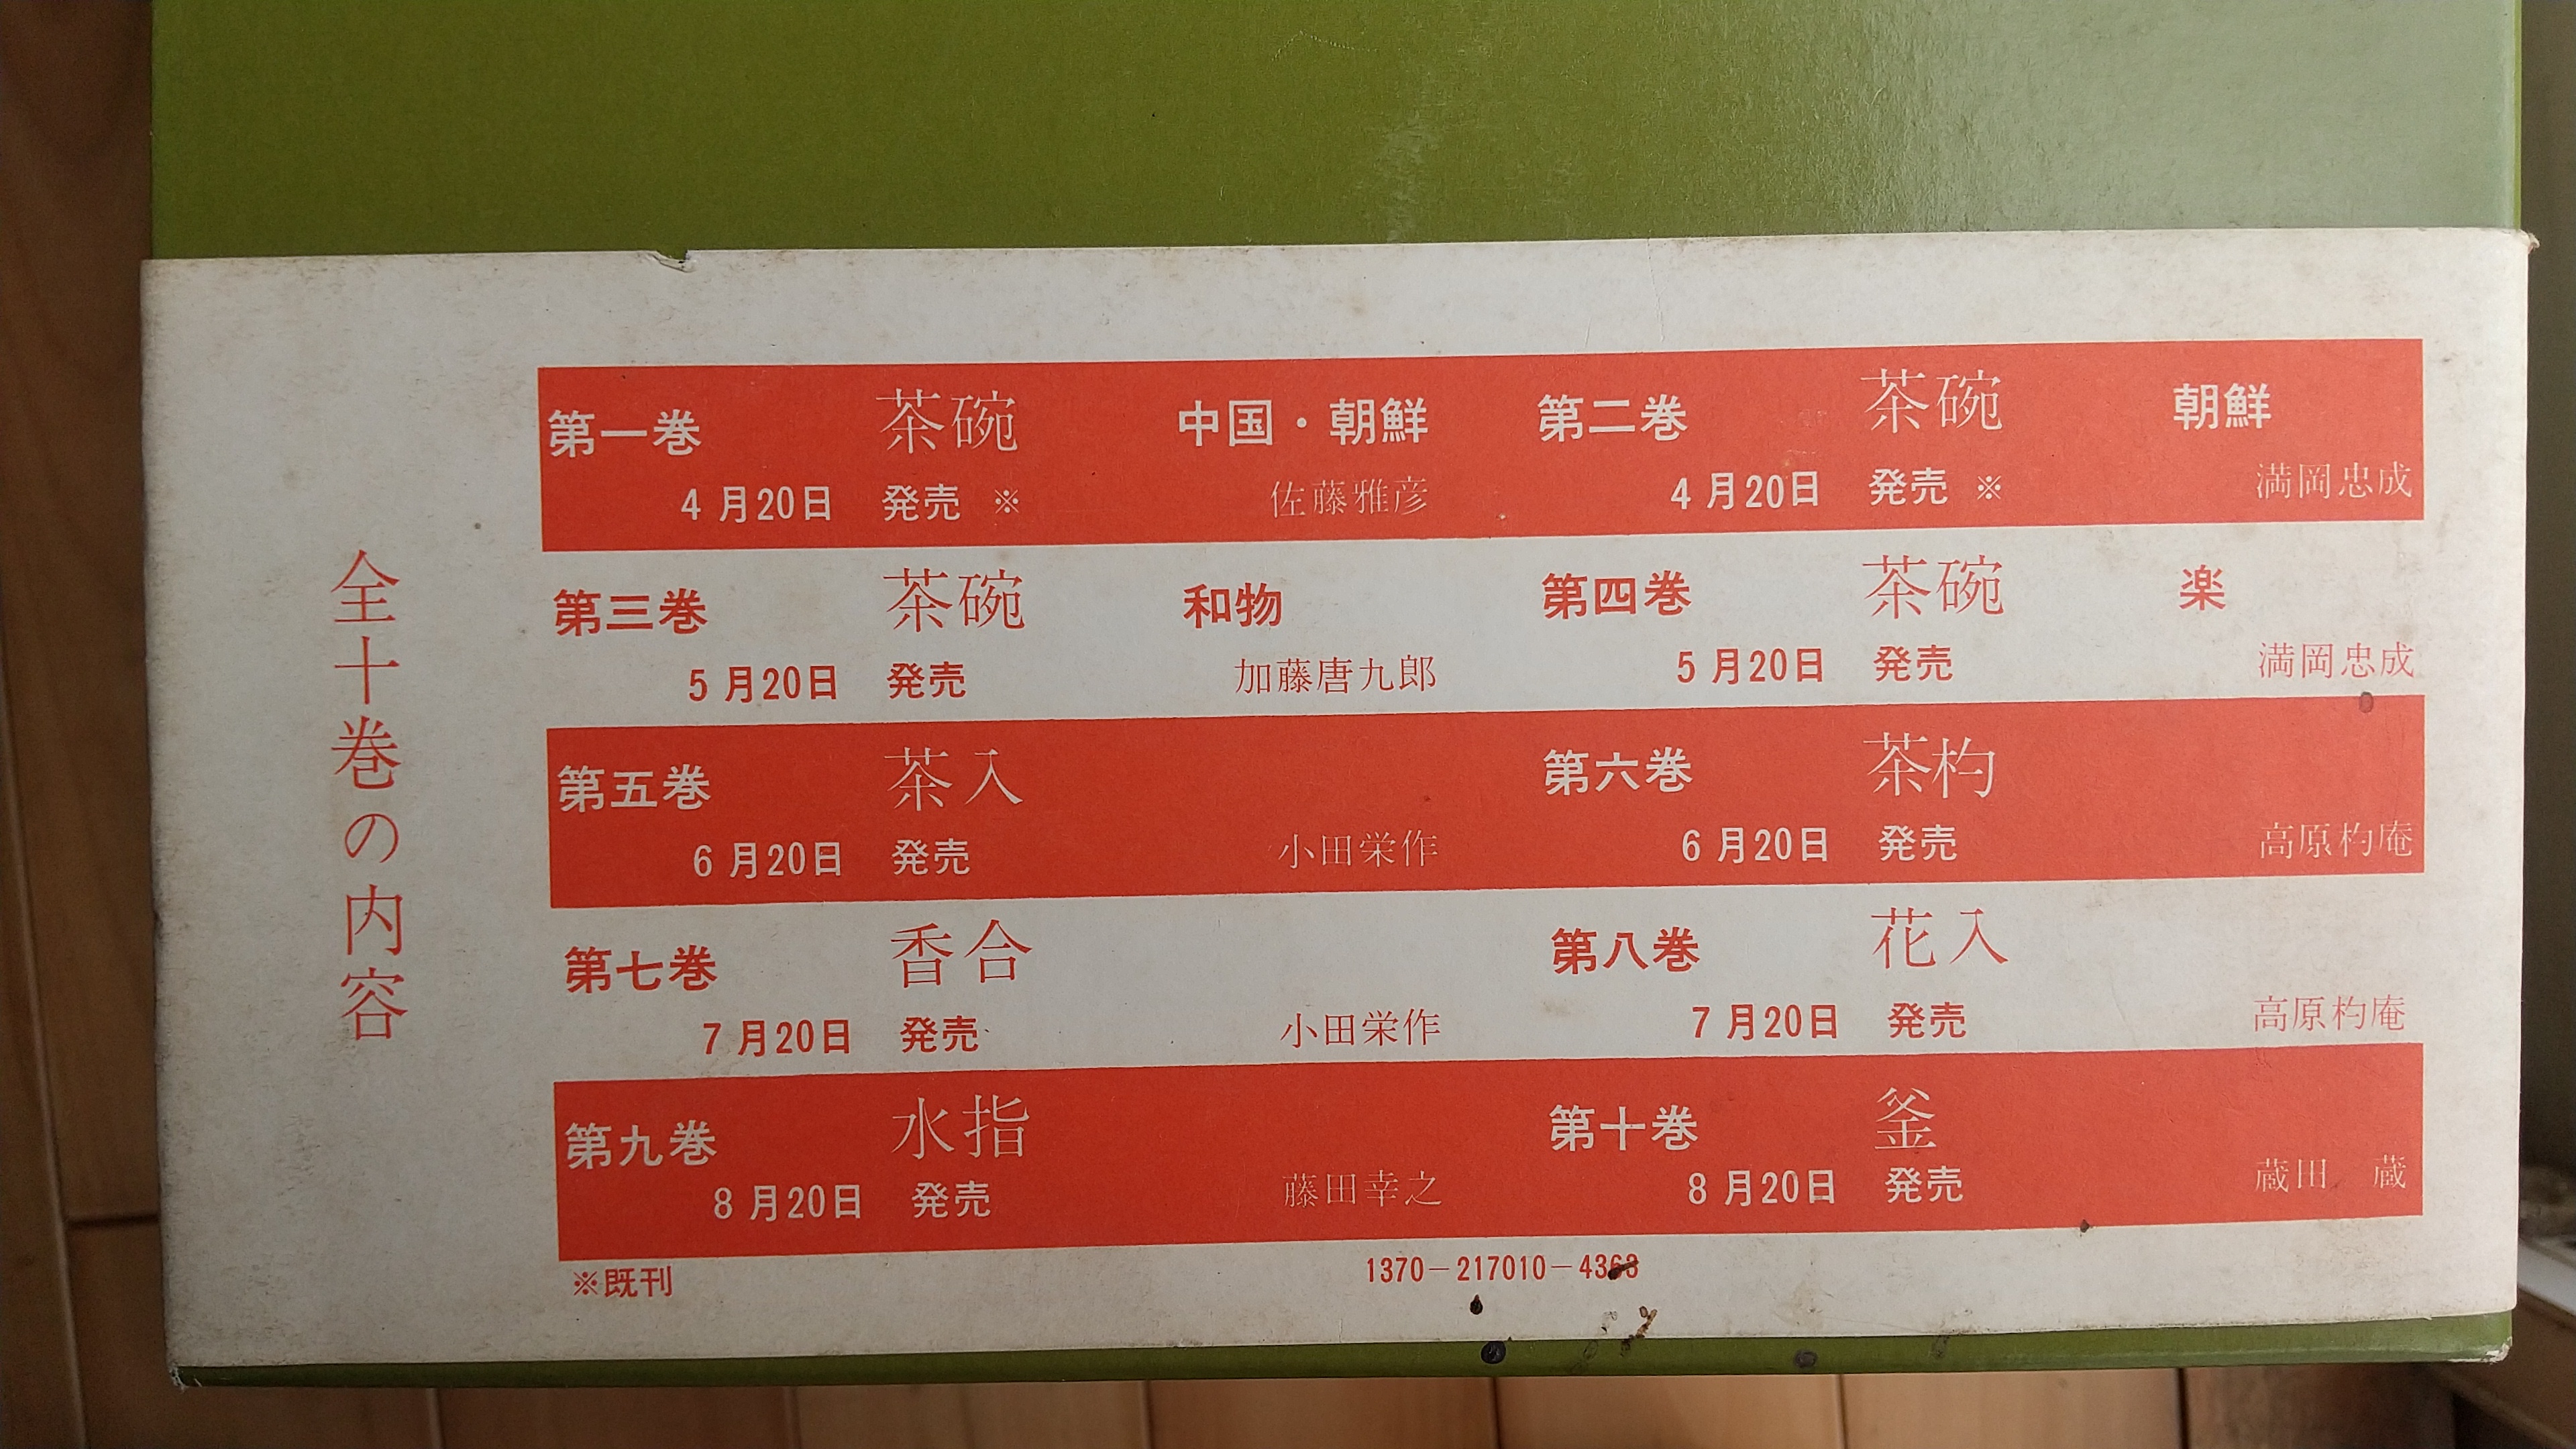 全十巻の内容
第一巻 茶碗 中国・朝鮮
4月20日 発売 ※ 佐藤雅彦
第二巻 茶碗 朝鮮
4月20日 発売 ※ 満岡忠成
第三巻 茶碗 和物
5月20日 発売 加藤唐九郎
第四巻 茶碗 楽
5月20日 発売 満岡忠成
第五巻 茶入
6月20日 発売 小田栄作
第六巻 茶杓
6月20日 発売 高原杓庵
第七巻 香合
7月20日 発売 小田栄作
第八巻 花入
7月20日 発売 高原杓庵
第九巻 水指
8月20日 発売 藤田幸之
第十巻 釜
8月20日 発売 蔵田 蔵
※既刊
1370-217010-4368